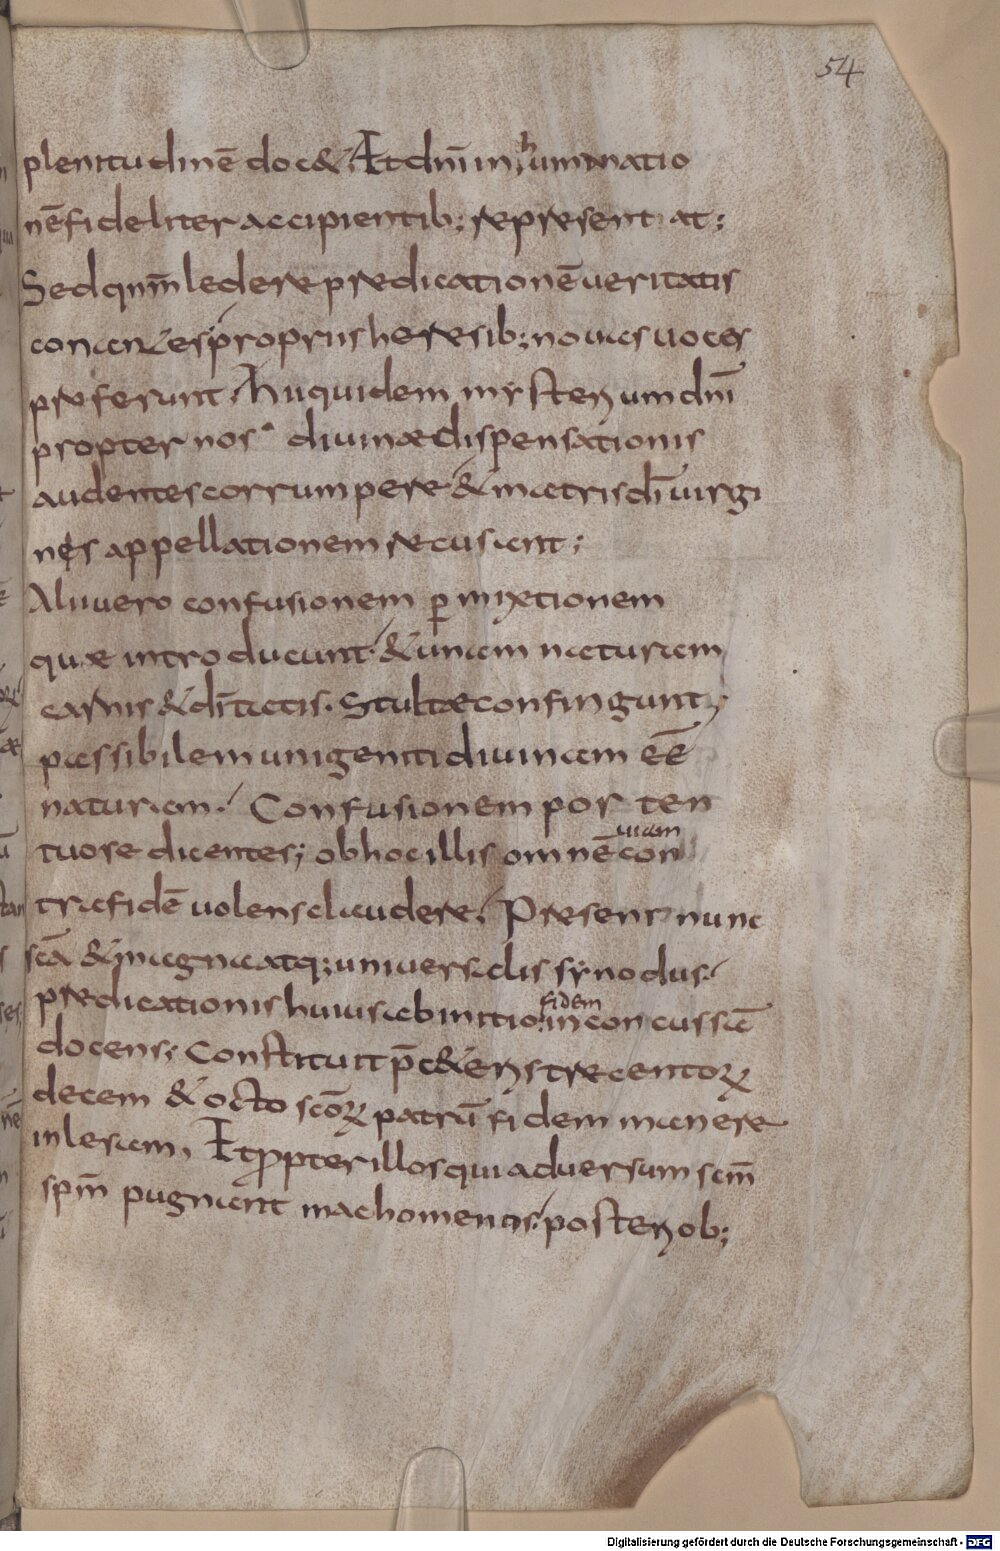 54
plenitudinē doc&; Et dnī in humanatio
nē fideliter accipientib; representat;
Sed qnm̄ ledere predicationē ueritatis
conantes propriis heresib; nouas uoces
preferunt. Hii quidem mysterium dnī
propter nos diuinae dispensationis
audentes corrumpere & matris dī uirgi
nes appellationem recusant;
Alii uero confusionem p mixtionem
quae introducunt & unam naturam
carnis & ditatis. Stultae confingunt;
passibilem unigeniti diuinam eē
naturam. Confusionem porten
tuose dicentes; ob hoc illis omnē uiam con
tra fidē uolens claudere. Presens nunc
scā & magna atq; uniuersalis synodus.
predicationis huius ab initio; fidem inconcussā
docens; Constituit p̄c&eris trecentoꝝ
decem & octo scōꝝ patrū fidem manere
inlesam, Et propter illos qui aduersum scm̄
spm̄ pugnant machomenos posteriorib;
Digitalisierung gefördert durch die Deutsche Forschungsgemeinschaft - DFG